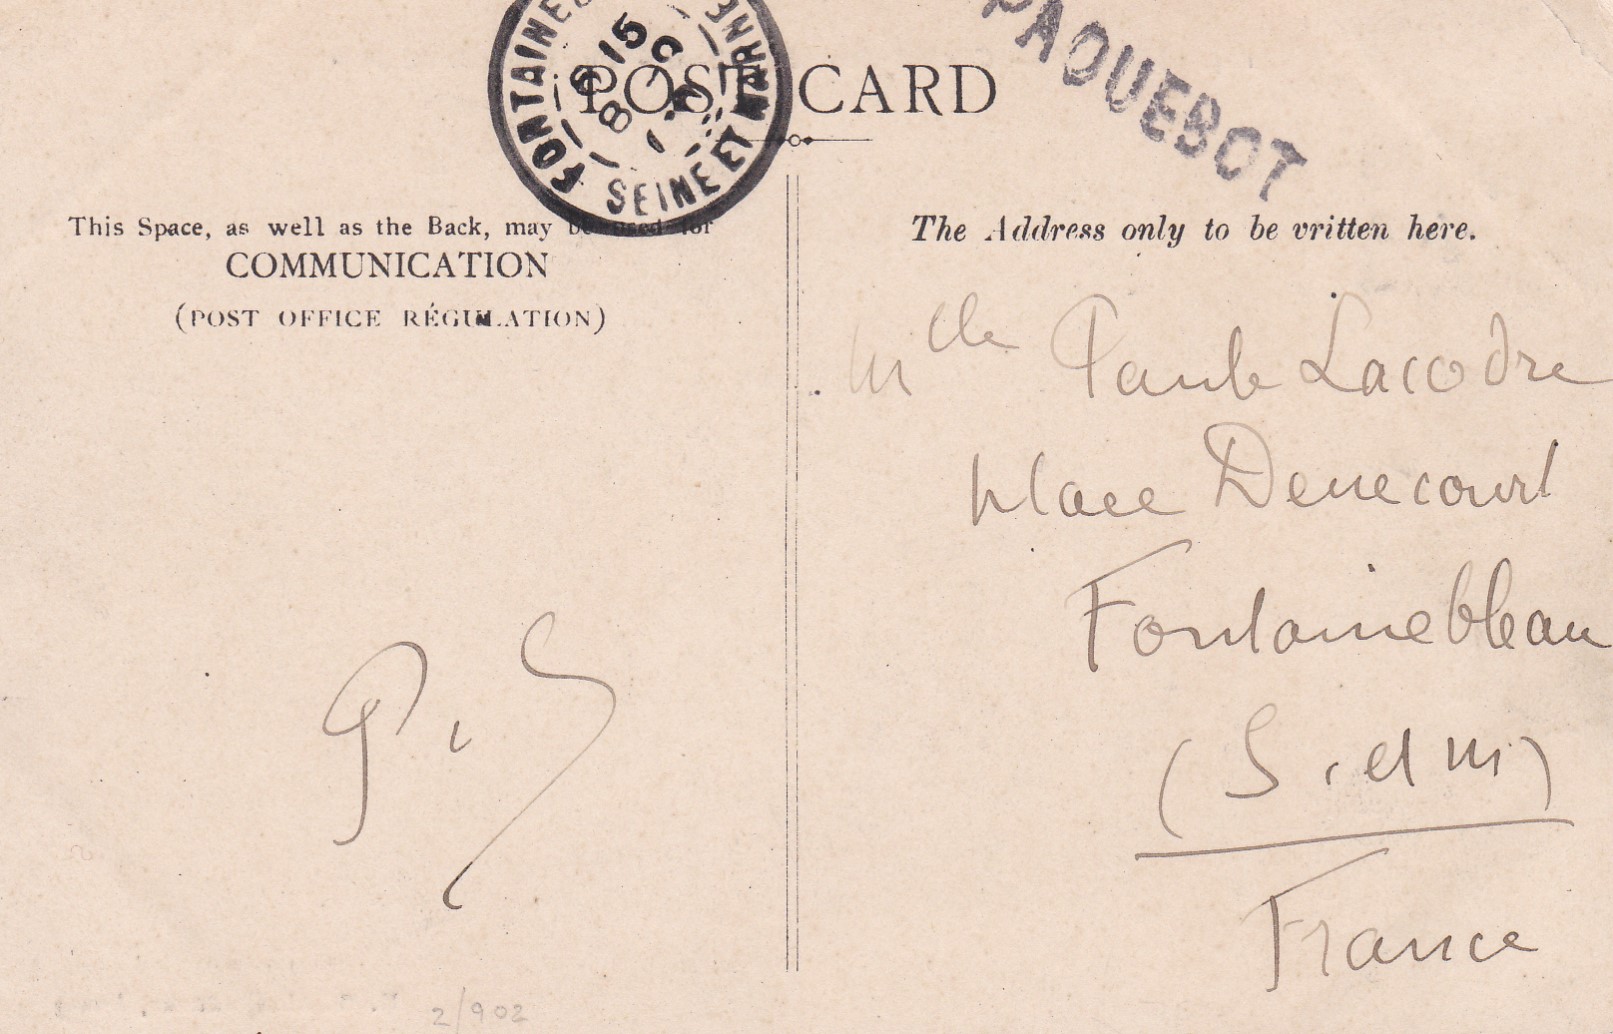 PAQUEBOT
FONTAINEB
SEINE ET MARNE
15
8
POST CARD
This Space, as well as the Back, may be used for
COMMUNICATION
(POST OFFICE RÉGULATION)
The Address only to be written here.
Mlle Paule Lacodre
place Denecourt
Fontainebleau
(S. et M)
France
P. S
2/902